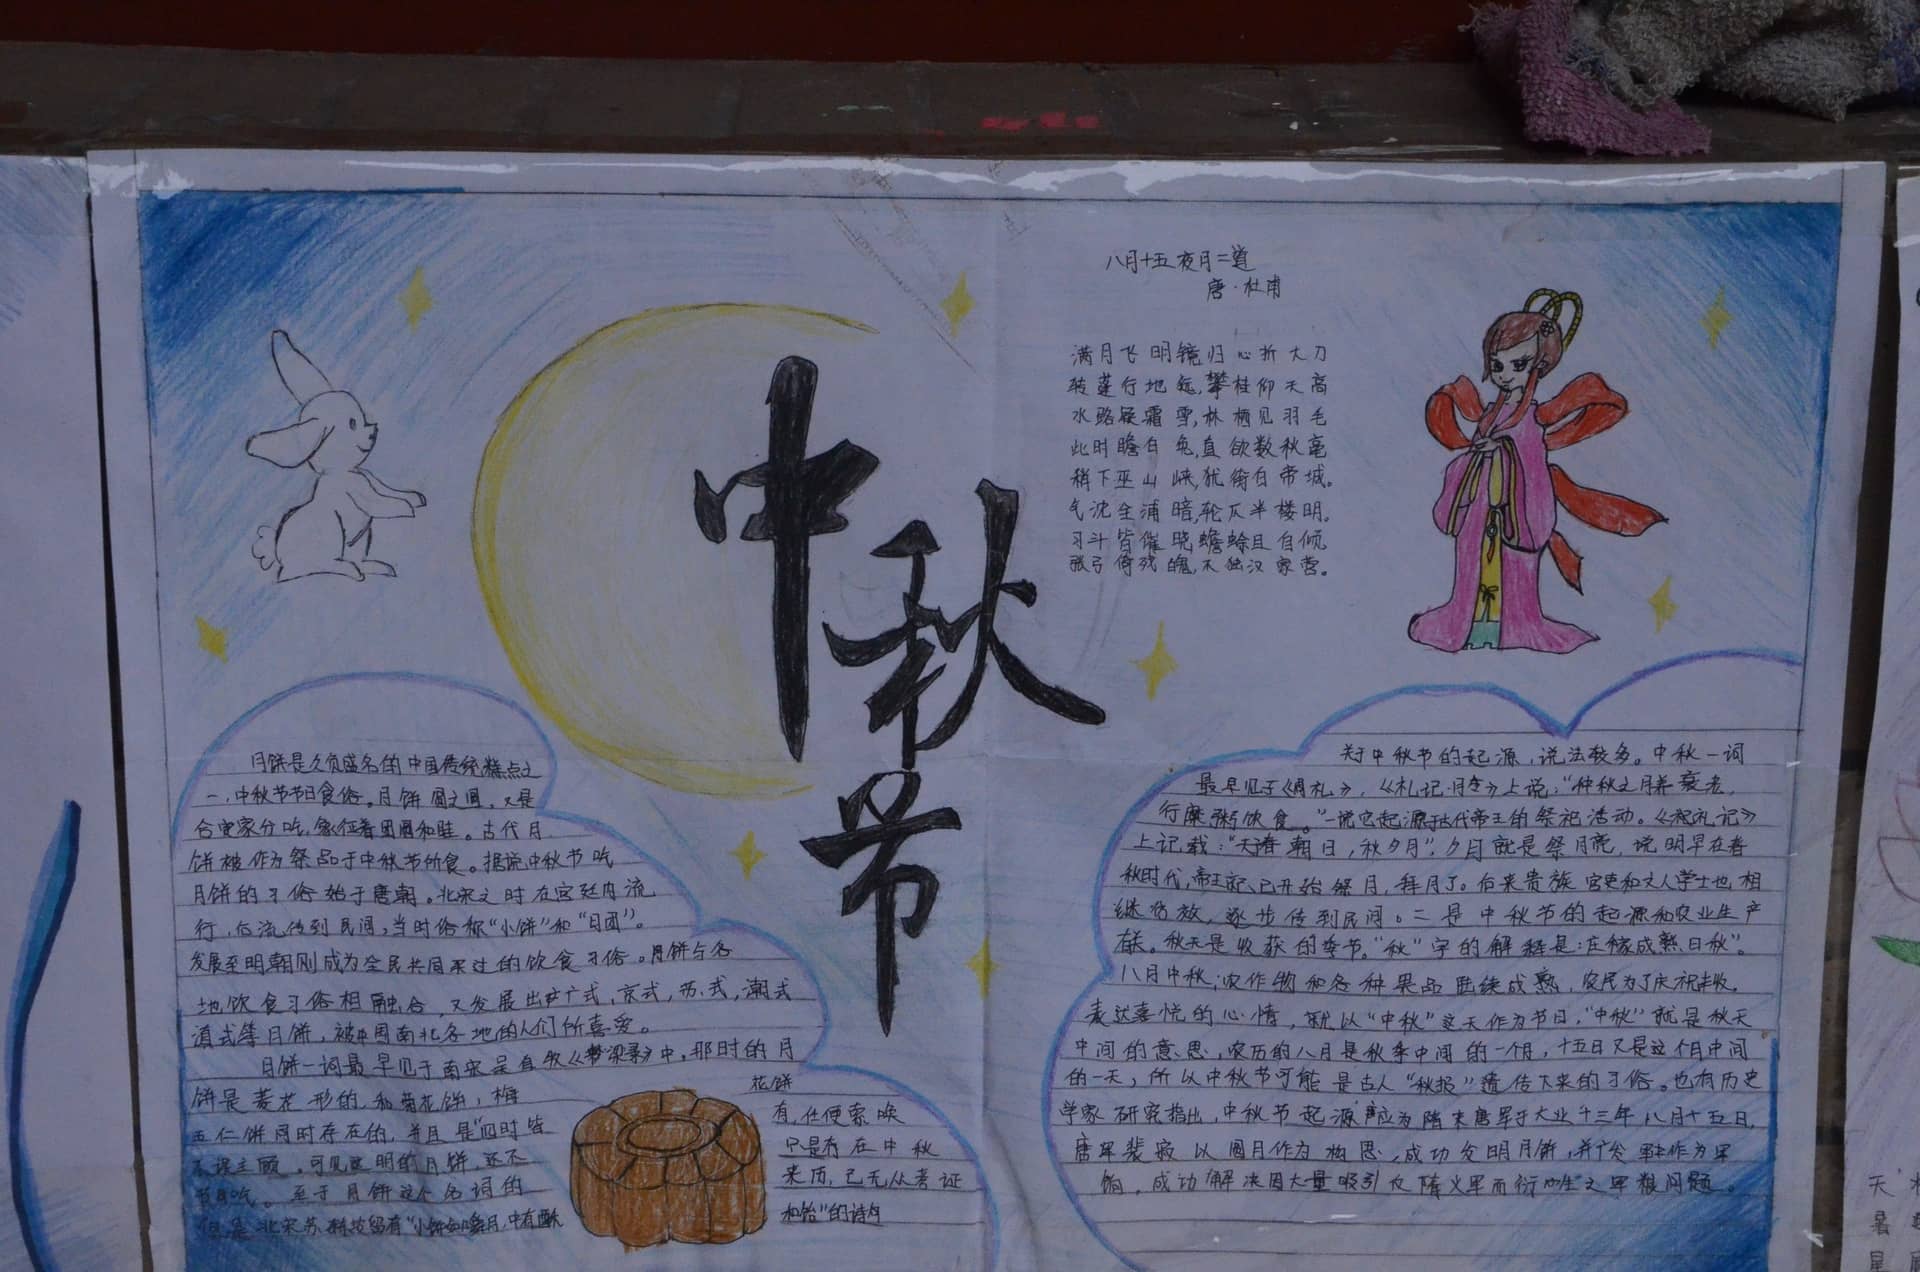 中秋节
八月十五夜月二道
唐·杜甫
满月飞明镜归心折大刀
转蓬行地远,攀桂仰天高
水路疑霜雪,林栖见羽毛
此时瞻白兔,直欲数秋毫
稍下巫山峡,犹衔白帝城。
气沈全浦暗,轮仄半楼明。
刁斗皆催晓蟾蜍且自倾
张弓倚残魄,不独汉家营。
月饼是久负盛名的中国传统糕点之
一,中秋节节日食俗。月饼圆又圆,又是
合家分吃,象征着团圆和睦。古代月
饼被作为祭品于中秋节所食。据说中秋节吃
月饼的习俗始于唐朝。北宋之时在宫廷内流
行,后流传到民间,当时俗称“小饼”和“月团”。
发展至明朝则成为全民共同的饮食习俗。月饼与各
地饮食习俗相融合,又发展出广式,京式,苏式,潮式
滇式等月饼,被中国南北各地的人们所喜爱。
月饼一词最早见于南宋吴自牧《梦梁录》中,那时的月
饼是菱花形的,和菊花饼,梅花饼
五仁饼同时存在的,并且是“四时皆有,任便索唤
不误主顾。可见这时的月饼,还不只是存在中秋
节吃。至于月饼这个名词的来历,已无从考证
但是北宋苏东坡留有“小饼如嚼月,中有酥和饴”的诗句
关于中秋节的起源,说法较多。中秋一词
最早见于《周礼》,《礼记·月令》上说:“仲秋之月养衰老,
行糜粥饮食。”一说它起源于古代帝王的祭祀活动。《礼记》
上记载:“天子春朝日,秋夕月”,夕月就是祭月亮,说明早在春
秋时代,帝王就已开始祭月,拜月了。后来贵族官吏和文人学士也相
继仿效,逐步传到民间。二是中秋节的起源和农业生产
有关。秋天是收获的季节。“秋”字的解释是:庄稼成熟曰秋”。
八月中秋,农作物和各种果品陆续成熟,农民为了庆祝丰收,
表达喜悦的心情,就以“中秋”这天作为节日,“中秋”就是秋天
中间的意思,农历的八月是秋季中间的一个月,十五日又是这个月中间
的一天,所以中秋节可能是古人“秋报”遗传下来的习俗。也有历史
学家研究指出,中秋节起源应为隋末唐军于大业十三年八月十五日,
唐军裴寂以圆月作为构思,成功发明月饼,并广发军中作为军
饷,成功解决因大量吸引反隋义军而衍生之军粮问题。